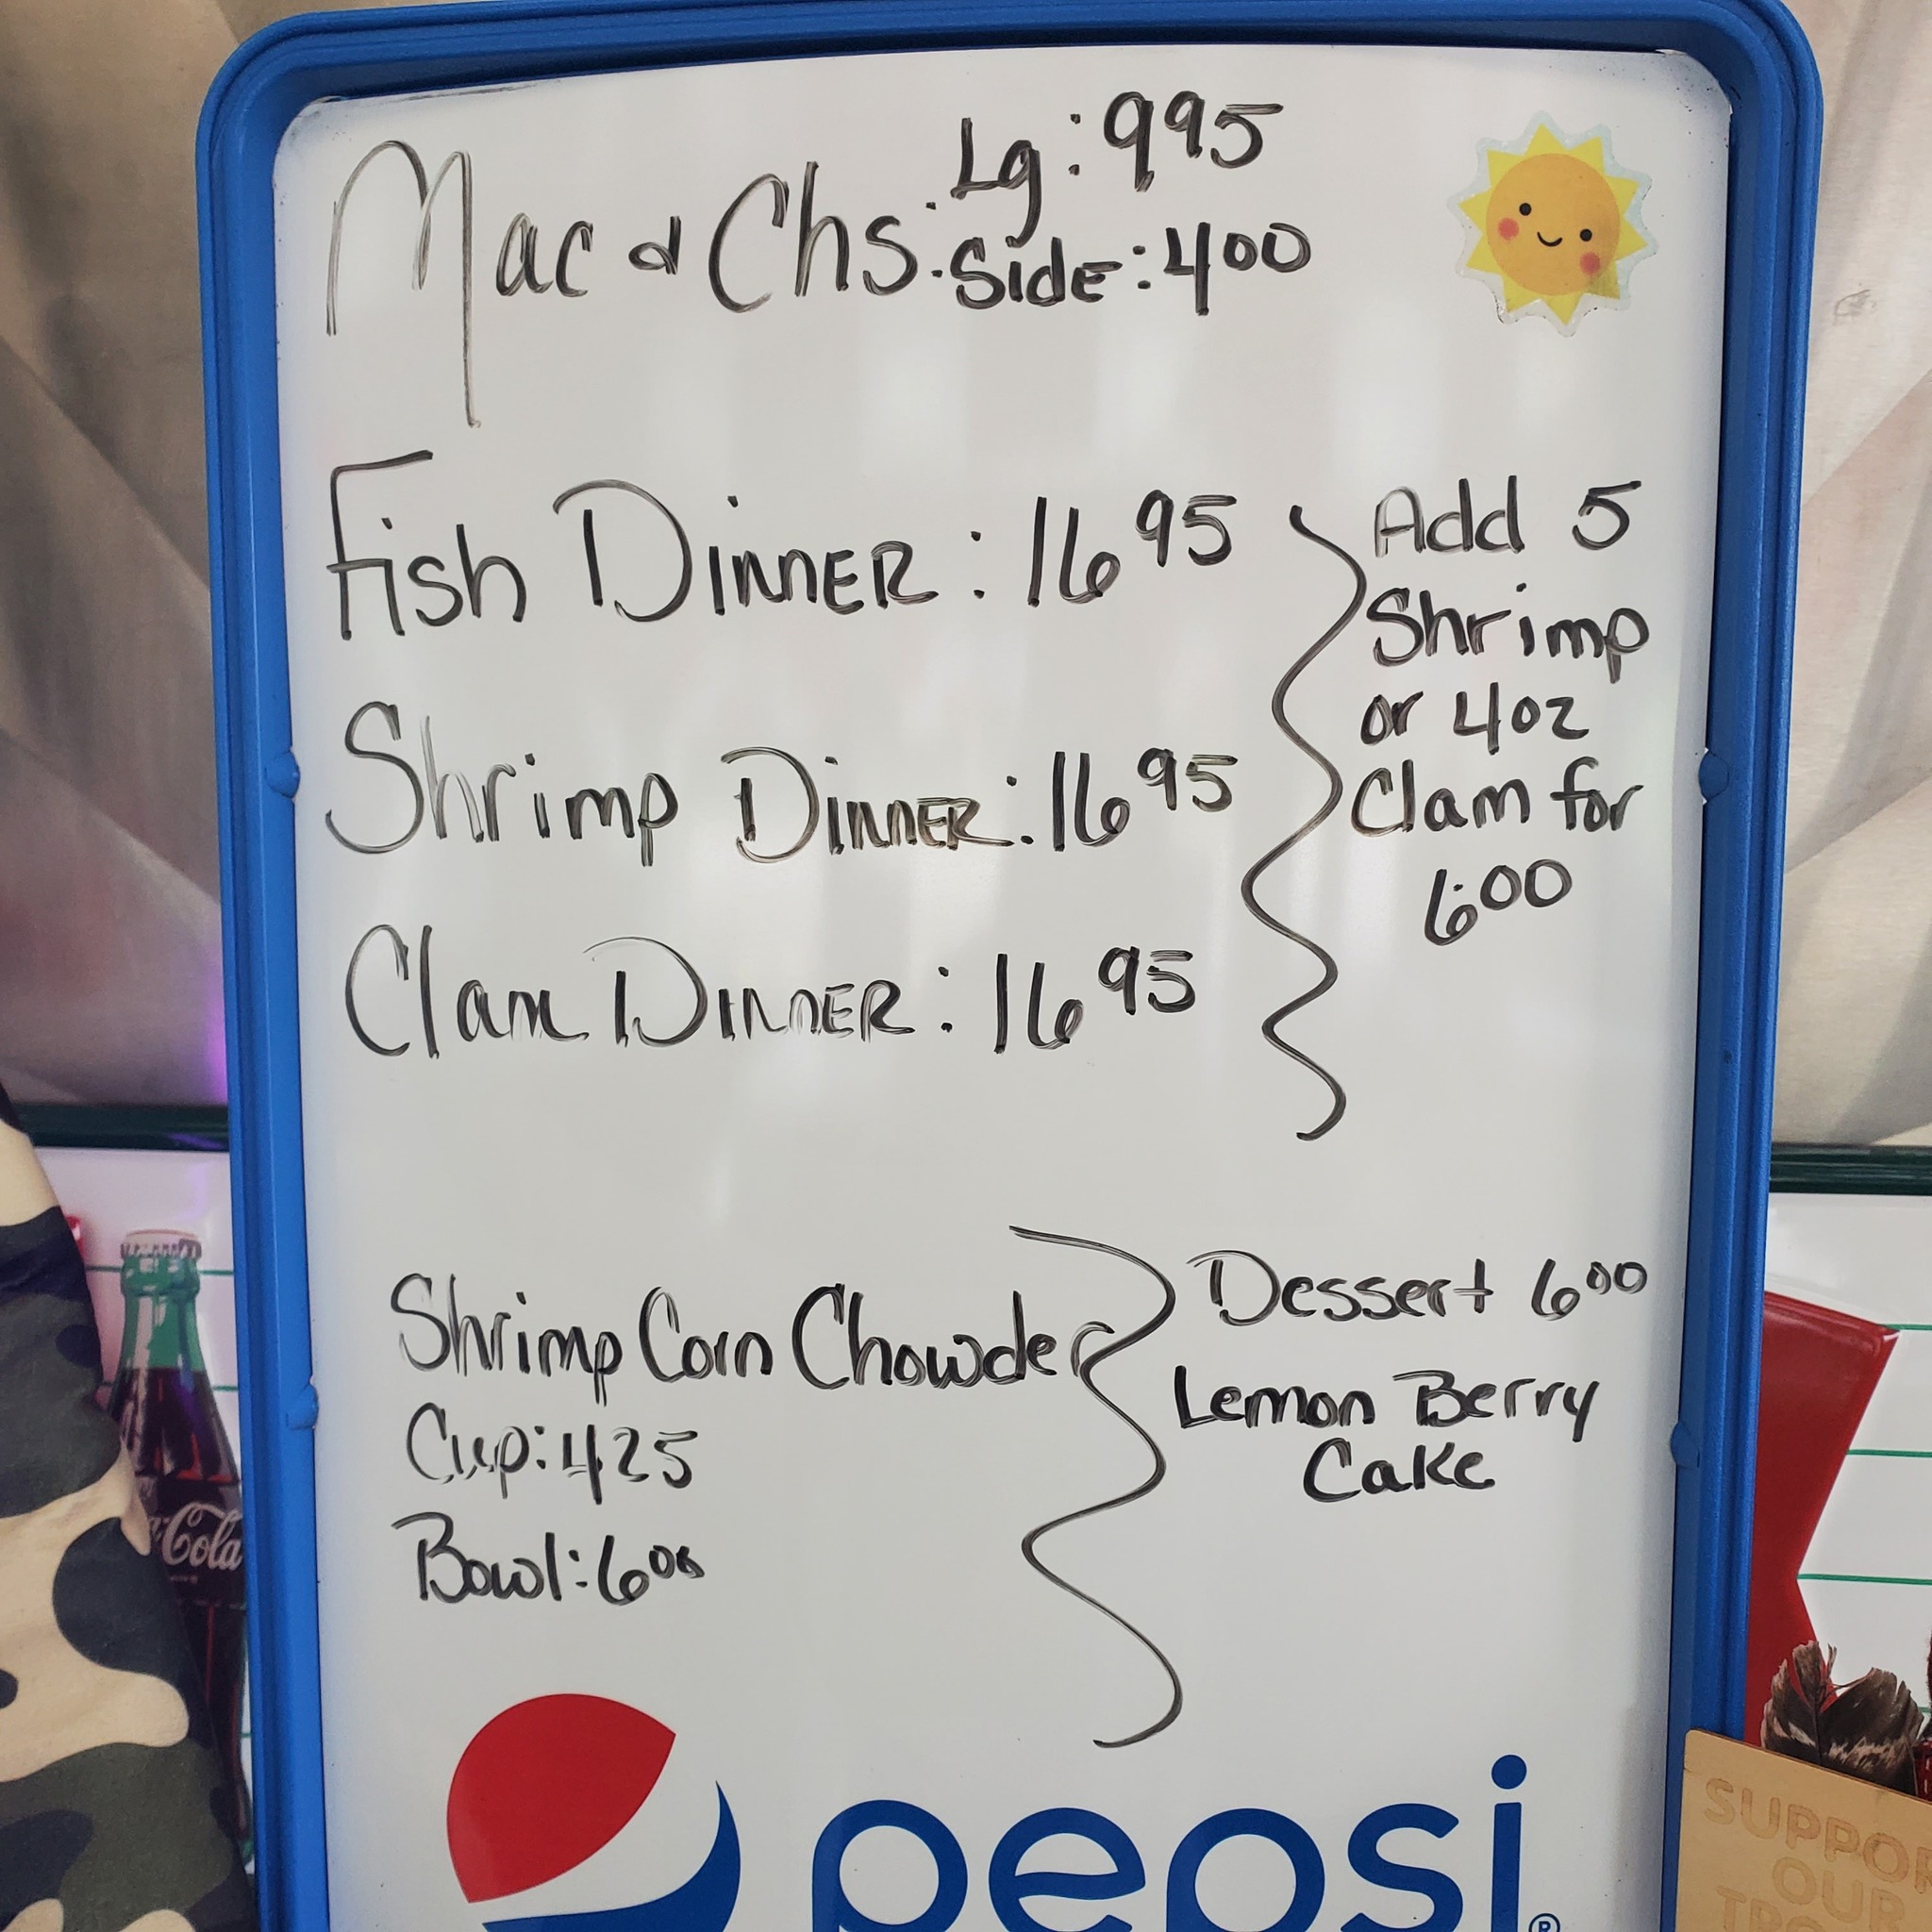 Lg: 995
Mac & Chs: Side: 400
Fish Dinner: 16 95
Shrimp Dinner: 16 95
Clam Dinner: 16 95
Add 5
Shrimp
or 4oz
Clam for
6.00
Shrimp Corn Chowder
Cup: 425
Bowl: 600
Dessert 600
Lemon Berry
Cake
pepsi
®
Cola
SUPPOR
OUR
TRO